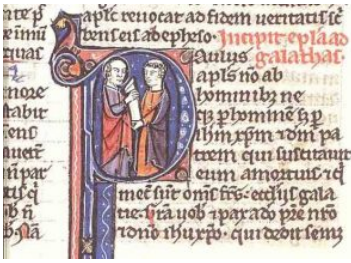 apls reuocat ad fidem ueritatis sc
bens eis ab epheso. Incipit epla ad
galathas.
Paulus
apls nō ab
hominibz ne
qz p hominē sz p
ihm xpm ⁊ dm pa
trem qui suscitauit
eum a mortuis ⁊ q
mecū sūt omēs frēs. ecclijs gala
tie. Grā uob ⁊ pax a dō pre nrō
⁊ dnō ihu xpō. qui dedit semz